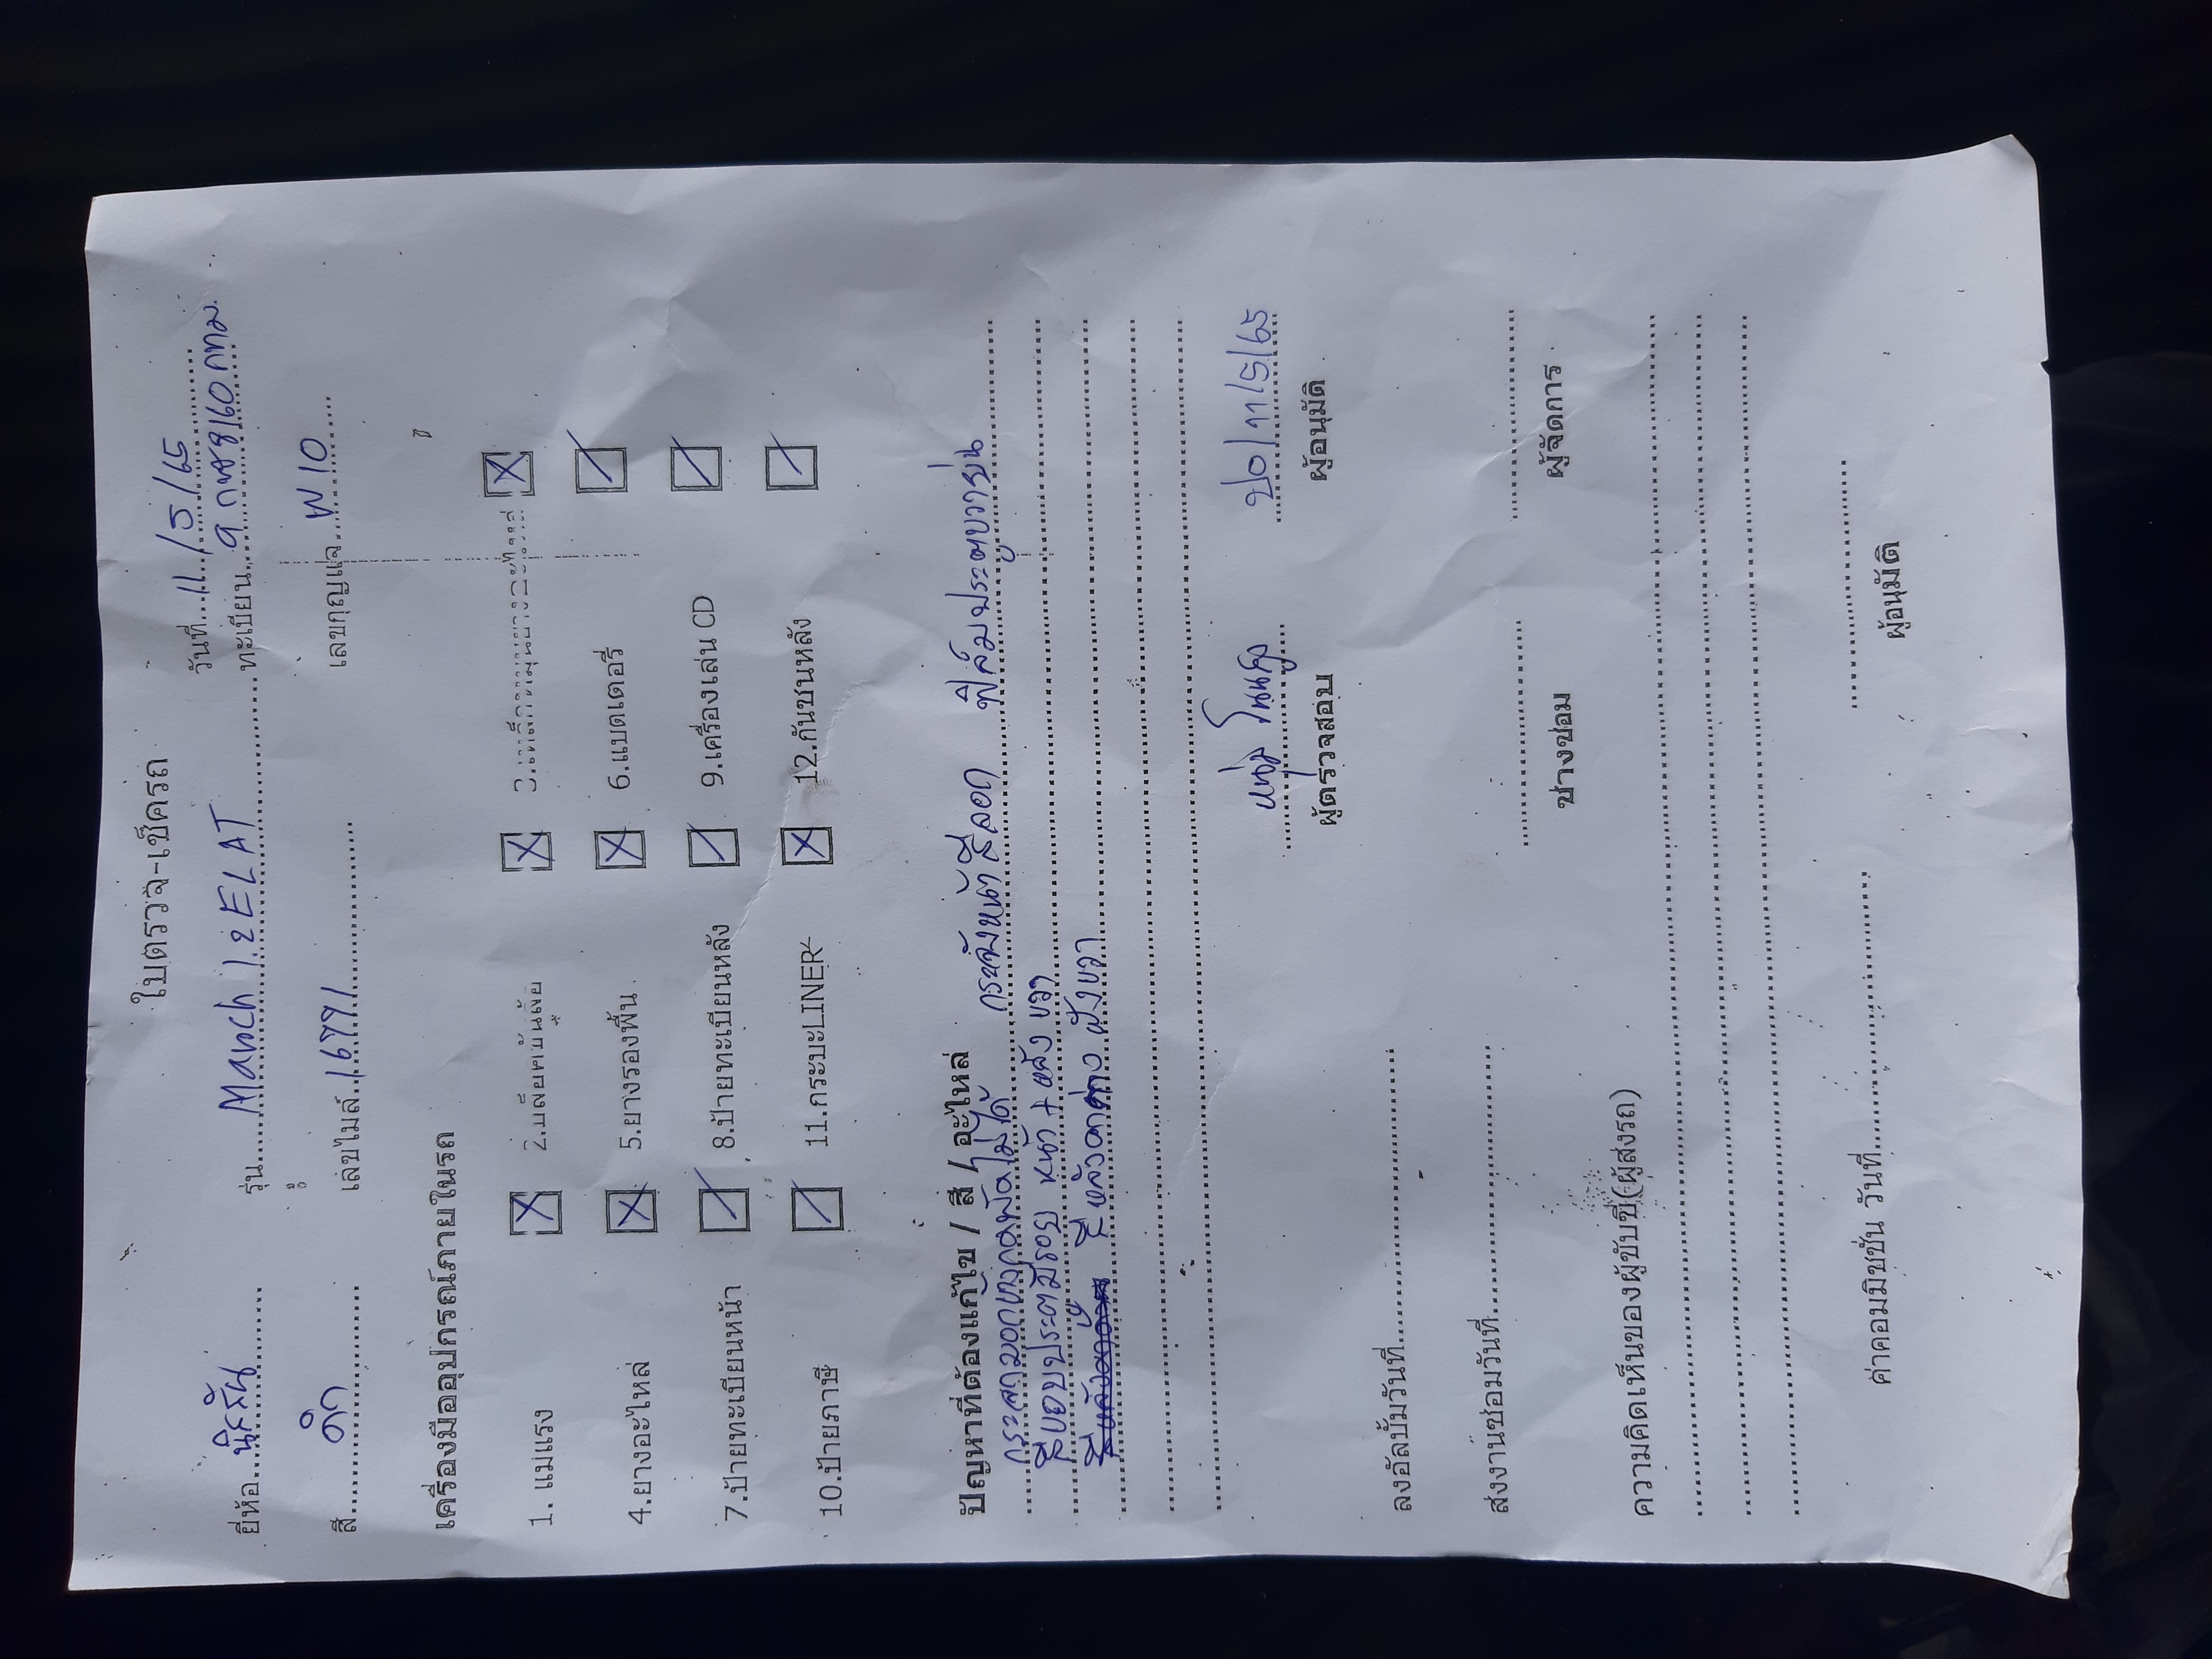 ใบตรวจ-เช็ครถ
วันที่...11/5/65
ยี่ห้อ..นิสสัน รุ่น....March 1.2 EL AT ทะเบียน..9 กซ 8160 กทม.
สี.......ดำ เลขไมล์..16771 เลขกุญแจ...W10
เครื่องมืออุปกรณ์ภายในรถ
1. แม่แรง ☒ 2.บล็อคขันล้อ ☒ ☒
4.ยางอะไหล่ ☒ 5.ยางรองพื้น ☒ 6.แบตเตอรี่ ☑
7.ป้ายทะเบียนหน้า ☑ 8.ป้ายทะเบียนหลัง ☑ 9.เครื่องเล่น CD ☑
10.ป้ายภาษี ☑ 11.กระบะLINER ☒ 12.กันชนหลัง ☑
ปัญหาที่ต้องแก้ไข / สี / อะไหล่ กระจังหน้าสีลอก ฟิล์มประตูขวาย่น
สีขอบประตูมีรอย หน้า + หลัง ขวา
ฝั่งขวา
11/5/65
ผู้ตรวจสอบ ผู้อนุมัติ
ลงอัลบั้มวันที่
ส่งงานซ่อมวันที่ ช่างซ่อม ผู้จัดการ
ความคิดเห็นของผู้ขับขี่(ผู้ส่งรถ)
ค่าคอมมิชชั่น วันที่ ผู้อนุมัติ